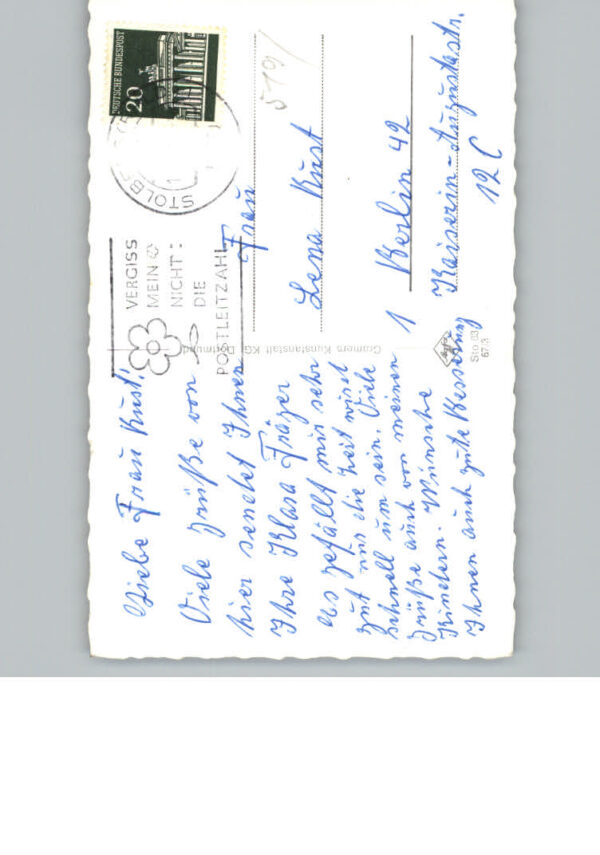 Liebe Frau Kust!
Viele Grüße von
hier sendet Ihnen
Ihre Klara Fräger
es gefällt mir sehr
gut nur die Zeit wird
schnell um sein. Viele
Grüße auch von meinen
Kindern. Wünsche
Ihnen auch gute Besserung
DEUTSCHE BUNDESPOST
20
STOLB
VERGISS
MEIN
NICHT:
DIE
POSTLEITZAHL
Cramers Kunstanstalt KG, Dortmund
Sto 83
67.3
519/
Frau
Lena Kust
1 Berlin 42
Kaiserin-Augustastr.
12 C